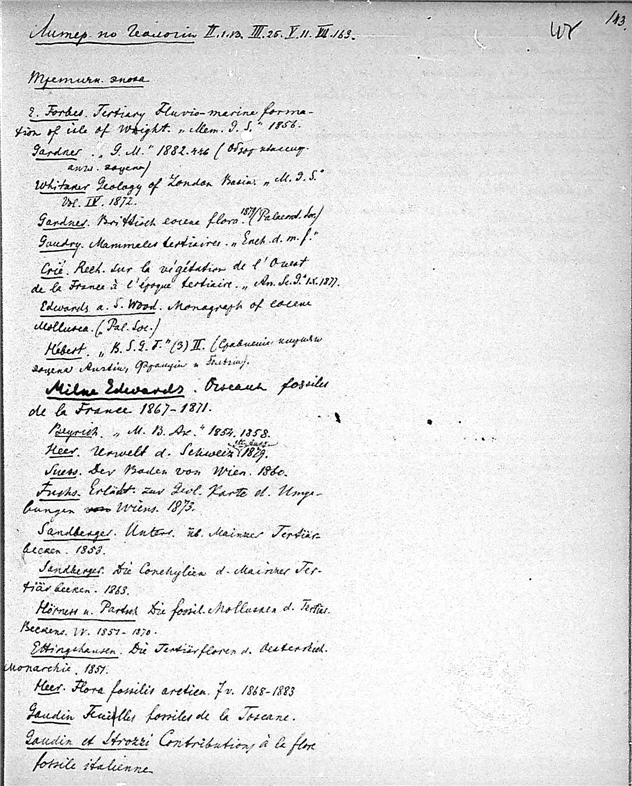 143.
Литер. по Геологии II.1.13. III.25. V.11. VII.163.
Третичн. эпоха
E. Forbes. Tertiary Fluvio-marine forma-
tion of isle of Wright. „Mem. G. S.“ 1856.
Gardner. „G. M.“ 1882. 446 (Обзор
англ. эоцена)
Whitaker Geology of London Basin. „M. G. S.“
Vol. IV. 1872.
Gardner. Brittisch eocene flora. 1879 (Palaeond. Soc)
Gaudry. Mammeles tertiaires. „Ench. d. m. f.“
Crié. Rech. sur la végétation de l'Ouest
de la France à l'époque tertiaire. „An. Sc. G.“ IX. 1877.
Edwards a. S. Wood. Monograph of eocene
Mollusca. („Pal. Soc.)
Hébert. „B. S. G. F.“ (3) II. (Сравнение
эоцена Англии, Франции и Бельгии).
Milne Edwards. Oiseaux fossiles
de la France 1867-1871.
Beyrich. „M. B. Ak.“ 1854. 1858.
Heer. Urwelt d. Schweiz 1879.
Suess. Der Boden von Wien. 1860.
Fuchs. Erläut. zur Geol. Karte d. Umge-
bungen Wiens. 1873.
Sandberger. Unters. üb. Mainzer Tertiär-
becken. 1853.
Sandberger. Die Conchylien d. Mainzer Ter-
tiärbecken. 1863.
Hörness u. Partsch Die fossil. Mollusken d. Tertiär.
Beckens. W. 1851-1870.
Ettingshausen. Die Tertiärfloren d. Oesterreich.
Monarchie. 1851.
Heer. Flora fossilis arctica. 7 v. 1868-1883
Gaudin Feuilles fossiles de la Toscane.
Gaudin et Strozzi Contributions à la flore
fossile italienne